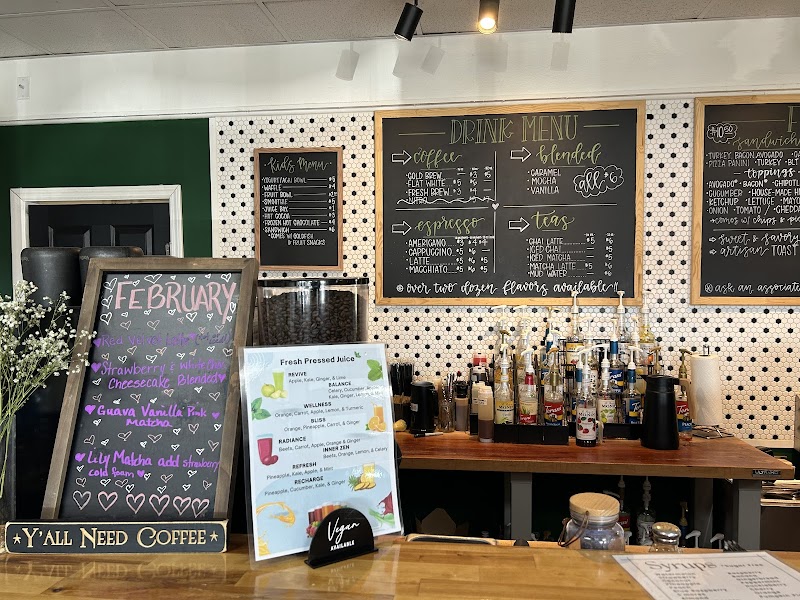 Kids Menu
YOGURT/ACAI BOWL $5
WAFFLE
FRUIT BOWL
SMOOTHIE
JUICE BOX
HOT COCOA
FROZEN HOT CHOCOLATE
SANDWICH
•COMES W/ GOLDFISH
& FRUIT SNACKS
DRINK MENU
coffee
•COLD BREW
•FLAT WHITE
•FRESH BREW
•NITRO
blended
•CARAMEL
•MOCHA
•VANILLA
all $6
espresso
•AMERICANO $3 $4 $4
•CAPPUCCINO $5
•LATTE
•MACCHIATO
teas
•CHAI LATTE
•ICED CHAI
•ICED MATCHA
•MATCHA LATTE
•MUD WATER
over two dozen flavors available
$10.50
sandwich
TURKEY BACON AVOCADO
PIZZA PANINI •TURKEY •BLT
toppings
AVOCADO* •BACON*
CUCUMBER •HOUSE MADE
KETCHUP •LETTUCE •MAYO
ONION •TOMATO
•comes w/ chips &
sweet & savory
artisan TOAST
ask an associate
FEBRUARY
Red Velvet
Strawberry & White Choc
Cheesecake Blended
Guava Vanilla Pink
Matcha
Lily Matcha add strawberry
cold foam
★Y'ALL NEED COFFEE★
Fresh Pressed Juice
REVIVE
Apple, Kale, Ginger, & Lime
BALANCE
Celery, Cucumber, Apple,
Kale, Ginger, & Lemon
WELLNESS
Orange, Carrot, Apple, Lemon, & Turmeric
BLISS
Orange, Pineapple, Carrot, & Ginger
RADIANCE
Beets, Carrot, Apple, Orange & Ginger
INNER ZEN
Beets, Orange, Lemon, & Celery
REFRESH
Pineapple, Kale, Apple, & Mint
RECHARGE
Pineapple, Cucumber, Kale, & Ginger
Vegan
AVAILABLE
Syrups *Sugar Free